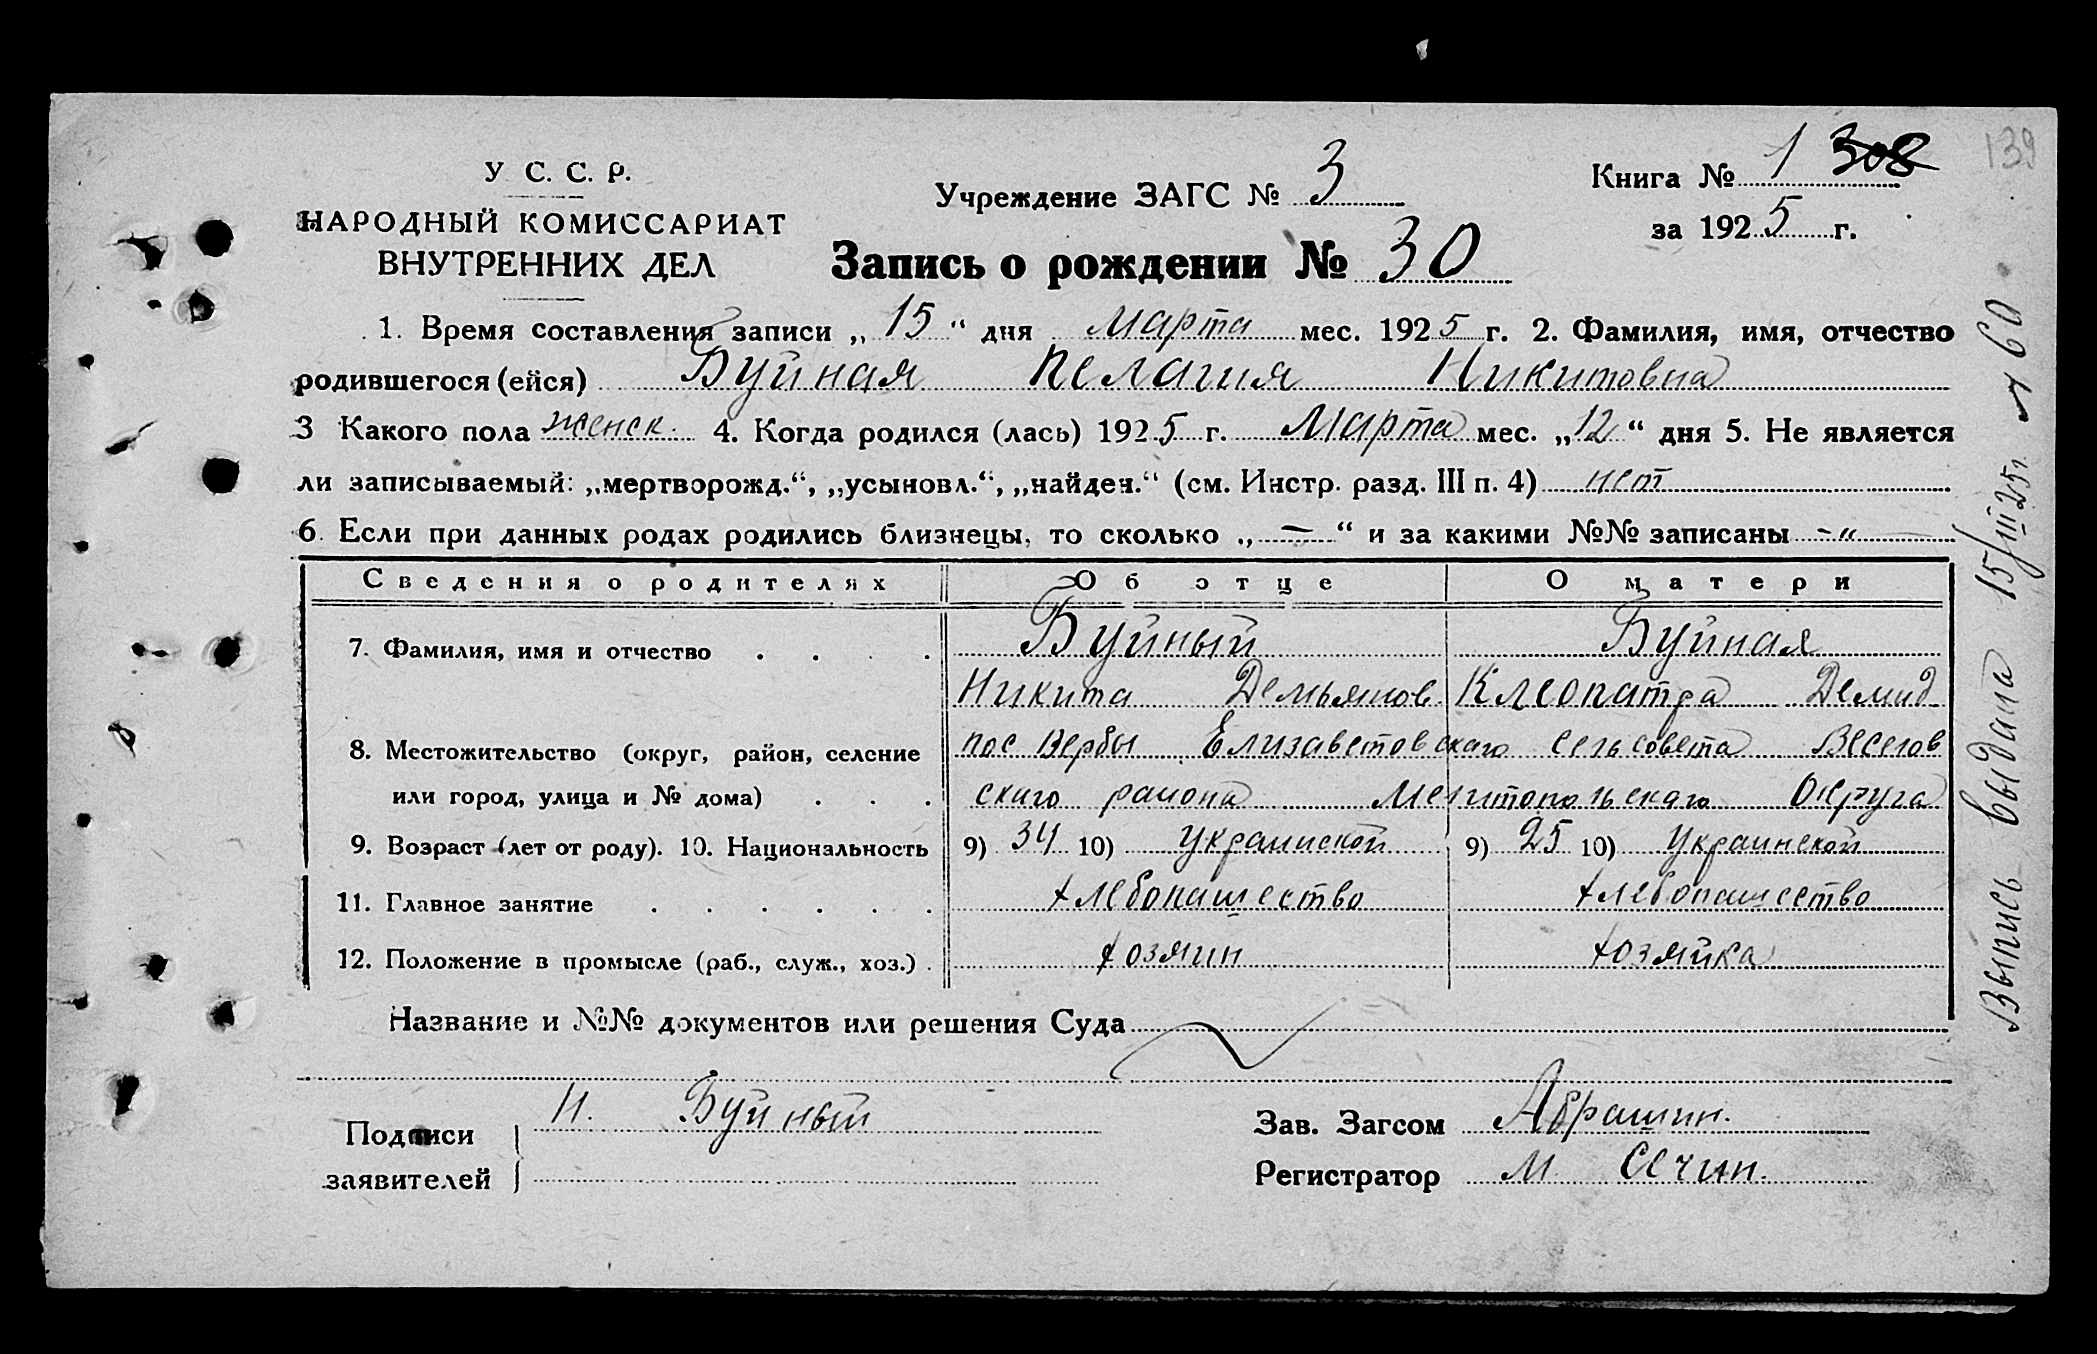 У С. С. Р.
НАРОДНЫЙ КОМИССАРИАТ
ВНУТРЕННИХ ДЕЛ
Учреждение ЗАГС № 3
Книга № 1 308
139
за 1925 г.
Запись о рождении № 30
1. Время составления записи „15“ дня Марта мес. 1925 г. 2. Фамилия, имя, отчество
родившегося (ейся) Буйная Пелагия Никитовна
3 Какого пола женск. 4. Когда родился (лась) 1925 г. Марта мес. „12“ дня 5. Не является
ли записываемый: „мертворожд.“, „усыновл.“, „найден.“ (см. Инстр. разд. III п. 4) нет
6. Если при данных родах родились близнецы, то сколько „—“ и за какими №№ записаны -"
Сведения о родителях Об отце О матери
7. Фамилия, имя и отчество . . . . Буйный Буйная
Никита Демьянов. Клеопатра Демид
8. Местожительство (округ, район, селение пос Вербы Елизаветовскаго сельсовета Веселов
или город, улица и № дома) . . . скаго района Мелитопольскаго Округа
9. Возраст (лет от роду). 10. Национальность 9) 34 10) Украинской 9) 25 10) Украинской
11. Главное занятие . . . . . . Хлебопашество Хлебопашество
12. Положение в промысле (раб., служ., хоз.) . Хозяин Хозяйка
Название и №№ документов или решения Суда
Подписи заявителей Н. Буйный
Зав. Загсом Абрашин.
Регистратор М Сечин.
Выпись выдана 15/III 25г. 60